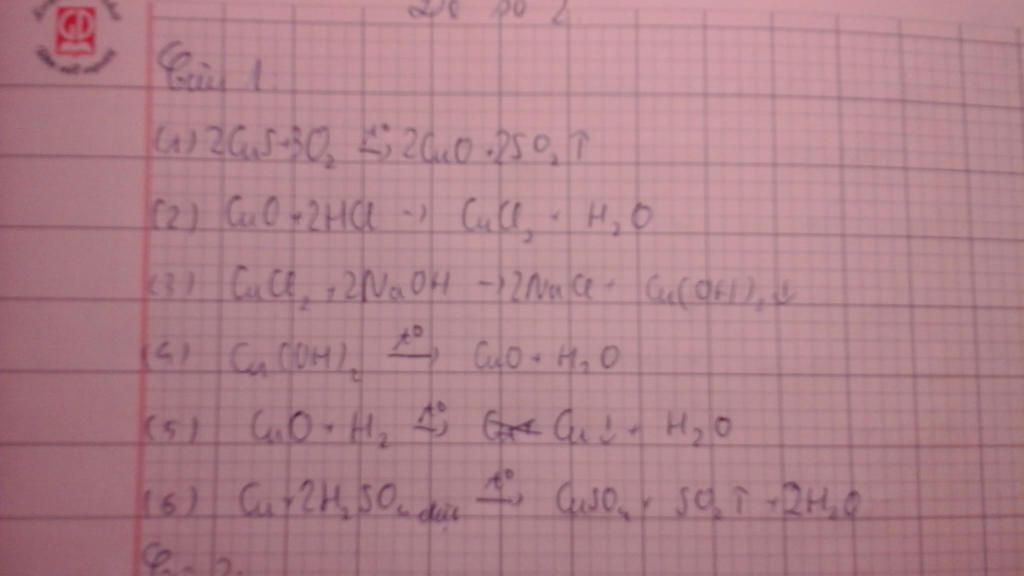 Đề số 2
GD
Câu 1.
(1) 2CuS+3O₂ t°→ 2CuO + 2SO₂ ↑
(2) CuO + 2HCl → CuCl₂ + H₂O
(3) CuCl₂ + 2NaOH → 2NaCl + Cu(OH)₂ ↓
(4) Cu(OH)₂ t°→ CuO + H₂O
(5) CuO + H₂ t°→ Cu ↓ + H₂O
(6) Cu + 2H₂SO₄ đặc t°→ CuSO₄ + SO₂ ↑ + 2H₂O
Câu 2.